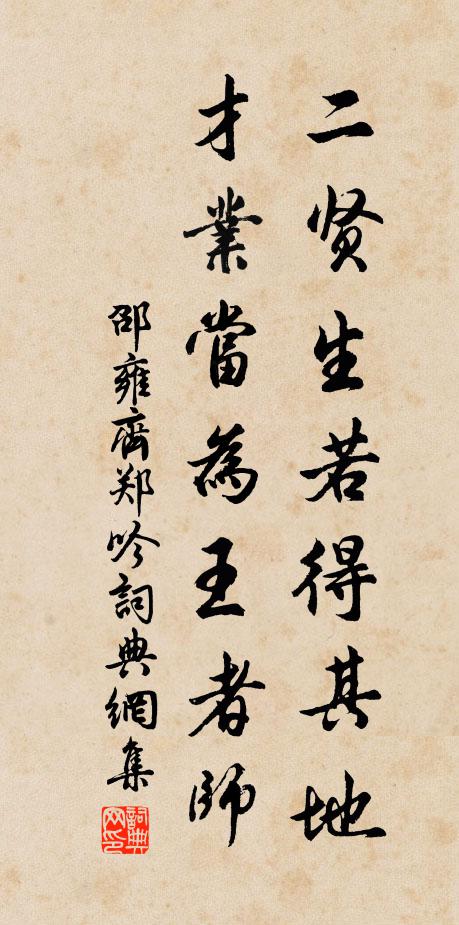 二贤生若得其地
才業當為王者師
邵雍齊郑吟詞典網集
詞典网印